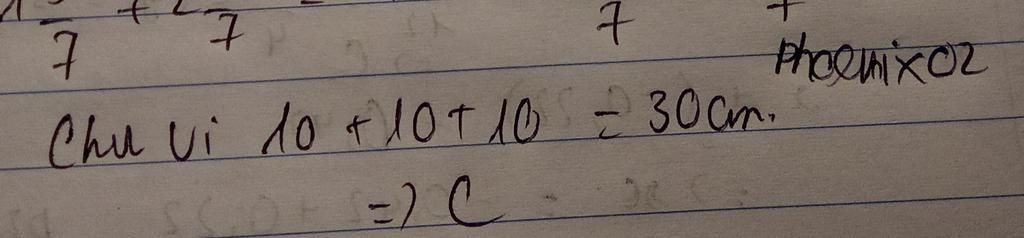 7 + 7 7
Phoenix02
Chu vi 10 + 10 + 10 = 30cm.
=> C